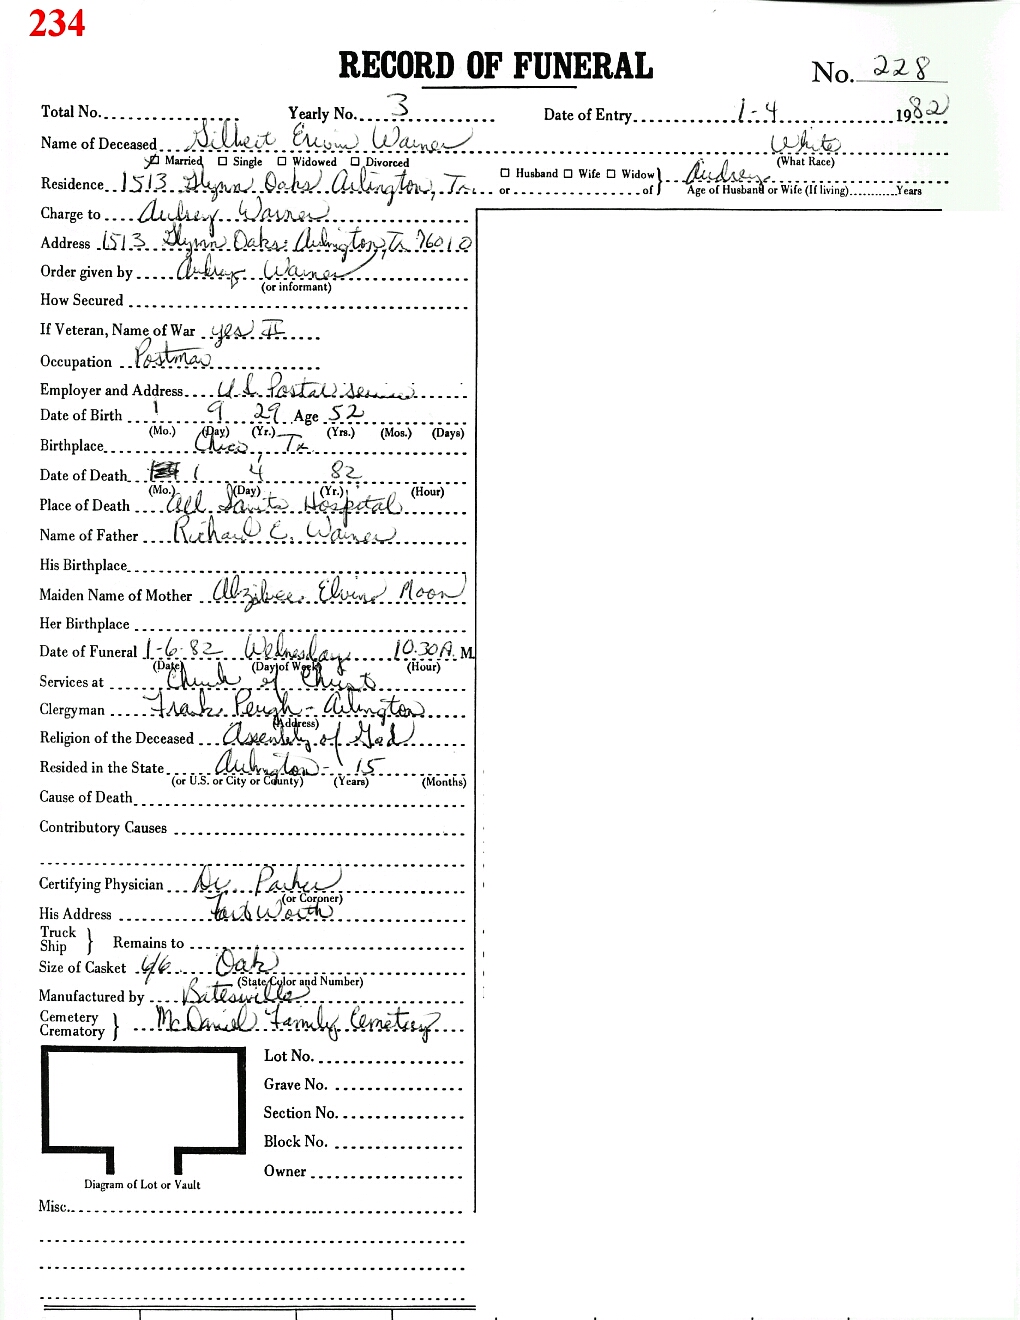 234
RECORD OF FUNERAL
No. 228
Total No. Yearly No. 3 Date of Entry 1-4 1982
Name of Deceased Gilbert Ervin Warner White
☑ Married ☐ Single ☐ Widowed ☐ Divorced (What Race)
Residence 1513 Glynn Oaks Arlington, Tx. ☐ Husband ☐ Wife ☐ Widow or of } Audrey Age of Husband or Wife (If living) Years
Charge to Audrey Warner
Address 1513 Glynn Oaks Arlington, Tx 76010
Order given by Audrey Warner
(or informant)
How Secured
If Veteran, Name of War yes II
Occupation Postman
Employer and Address U.S. Postal Service
Date of Birth 1 9 29 Age 52
(Mo.) (Day) (Yr.) (Yrs.) (Mos.) (Days)
Birthplace Chico, Tx
Date of Death 1 4 82
(Mo.) (Day) (Yr.) (Hour)
Place of Death All Saints Hospital
Name of Father Richard E. Warner
His Birthplace
Maiden Name of Mother Moon
Her Birthplace
Date of Funeral 1-6-82 Wednesday 10:30 A. M.
(Date) (Day of Week) (Hour)
Services at Church of Christ
Clergyman Frank Pough - Arlington
(Address)
Religion of the Deceased Assembly of God
Resided in the State Arlington - 15
(or U.S. or City or County) (Years) (Months)
Cause of Death
Contributory Causes
Certifying Physician Dr. Parker
(or Coroner)
His Address Fort Worth
Truck Ship } Remains to
Size of Casket 6/6 Oak
(State Color and Number)
Manufactured by Batesville
Cemetery Crematory } McDaniel Family Cemetery
Lot No.
Grave No.
Section No.
Block No.
Owner
Diagram of Lot or Vault
Misc.